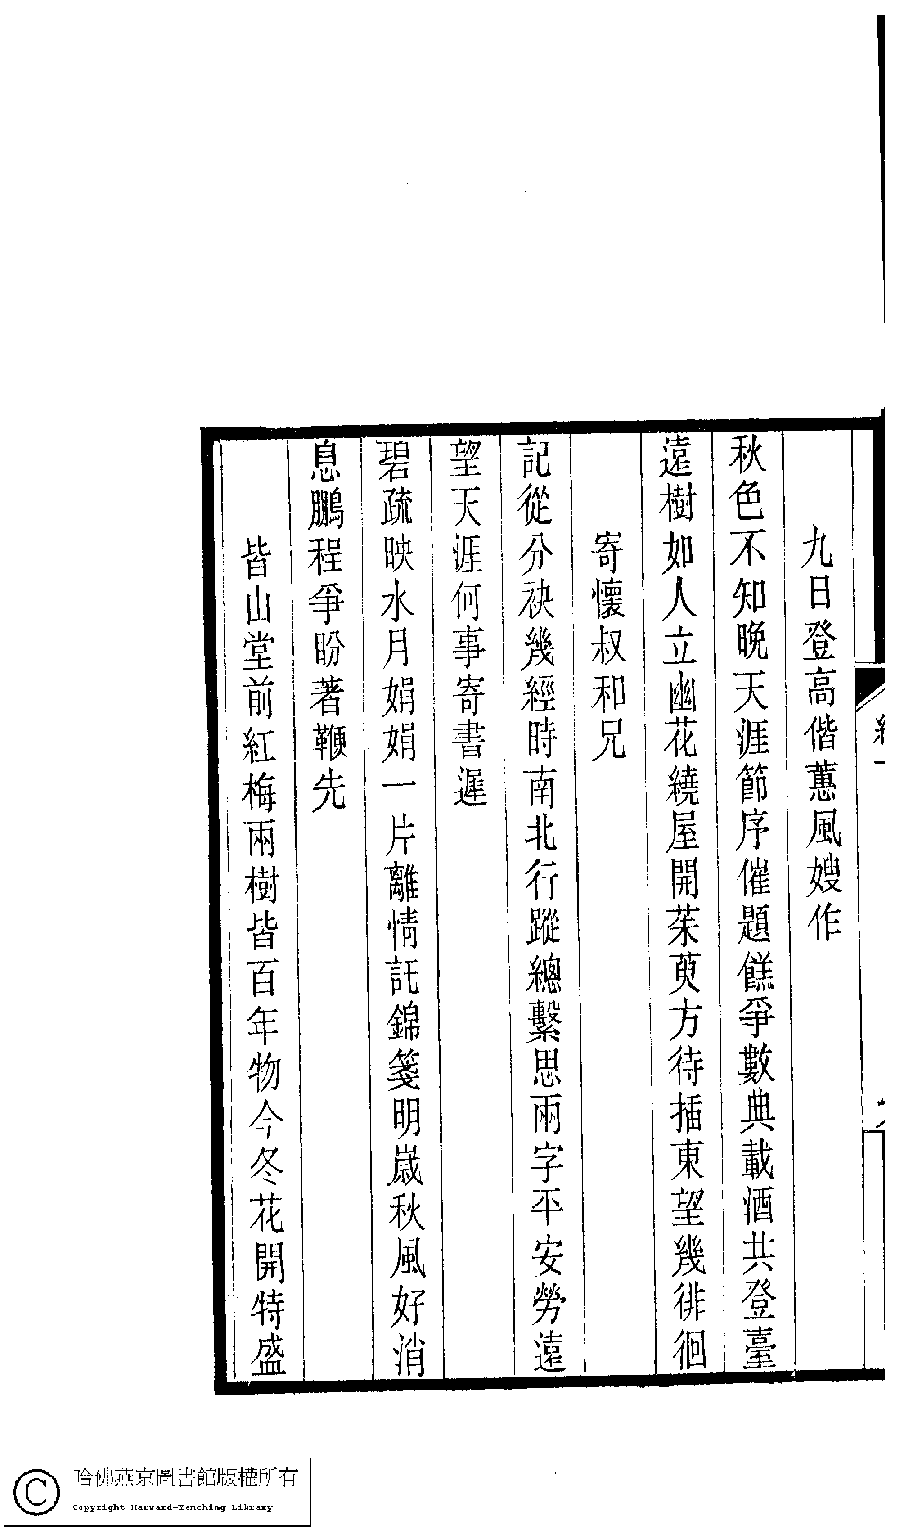 九日登高偕蕙風嫂作
秋色不知晚天涯節序催題餻爭數典載酒共登臺
遠樹如人立幽花繞屋開茱萸方待插東望幾徘徊
寄懷叔和兄
記從分袂幾經時南北行蹤總繫思兩字平安勞遠
望天涯何事寄書遲
碧疏映水月娟娟一片離情託錦箋明歲秋風好消
息鵬程爭盼著鞭先
皆山堂前紅梅兩樹皆百年物今冬花開特盛
哈佛燕京圖書館版權所有
Copyright Harvard-Yenching Library